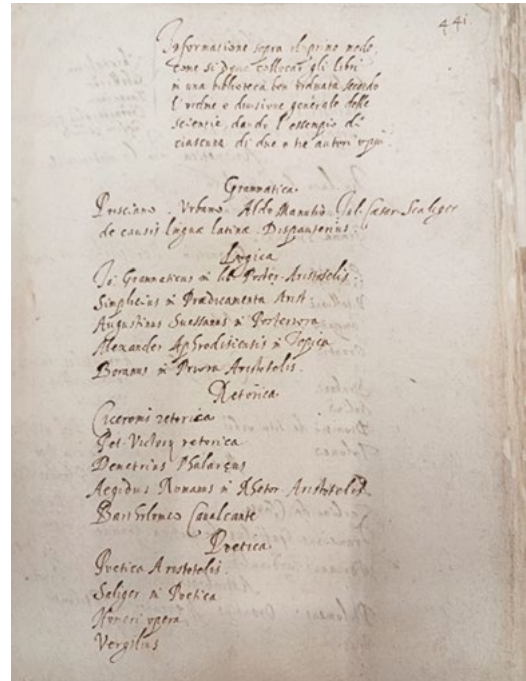 441.
Informatione sopra il primo modo,
come si deve collocar gli libri
in una biblioteca ben ordinata secondo
l'ordine e divisione generale delle
scientie, dando l'essempio di
ciascuna di due o tre autori
Grammatica
Prisciano. Urbano. Aldo Manutio. Jul. Caesar Scaliger
de causis linguæ latinæ. Dispauterius.
Logica
Jo: Grammaticus in lib. Poster. Aristotelis.
Simplicius in Prædicamenta Arist.
Augustinus Suessanus in Posteriora
Alexander Aphrodisiensis in Topica
in Priora Aristotelis.
Retorica
Ciceronis retorica
Pet. Victorij retorica
Demetrius Phalareus
Aegidius Romanus in Rhetor. Aristotelis.
Bartholomeo Cavalcante
Poetica
Poetica Aristotelis.
Saliger in Poetica
Homeri opera
Vergilius